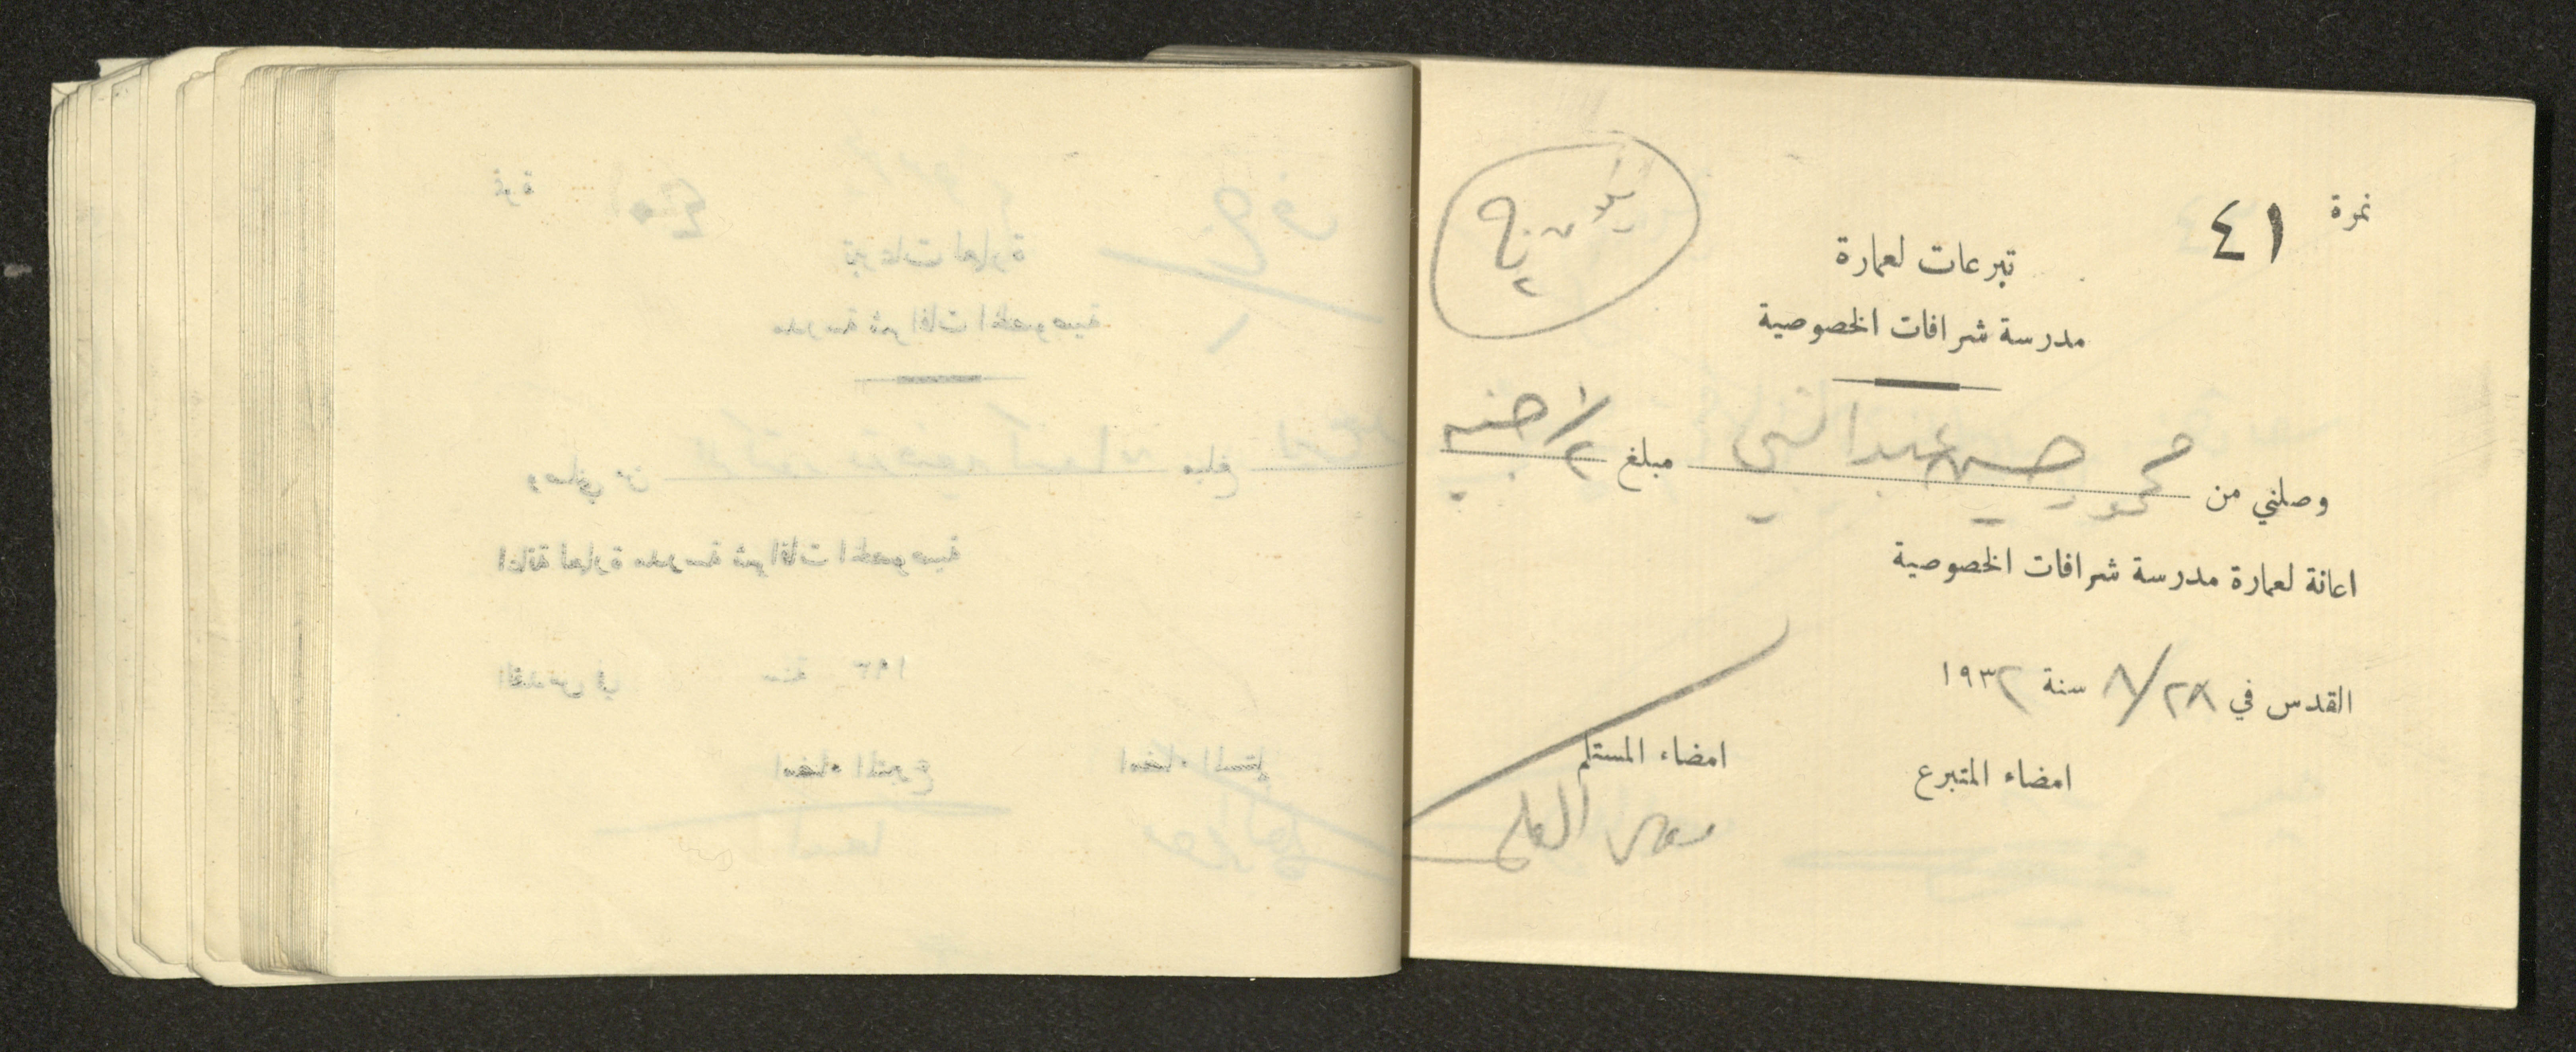 نمرة ٤١
تبرعات لعمارة
مدرسة شرافات الخصوصية
وصلني من محمود حسين عبد النبي مبلغ ١/٢ جنيه
اعانة لعمارة مدرسة شرافات الخصوصية
القدس في ٢٨/٨ سنة ١٩٣٢
امضاء المتبرع
امضاء المستلم
موسى العلمي